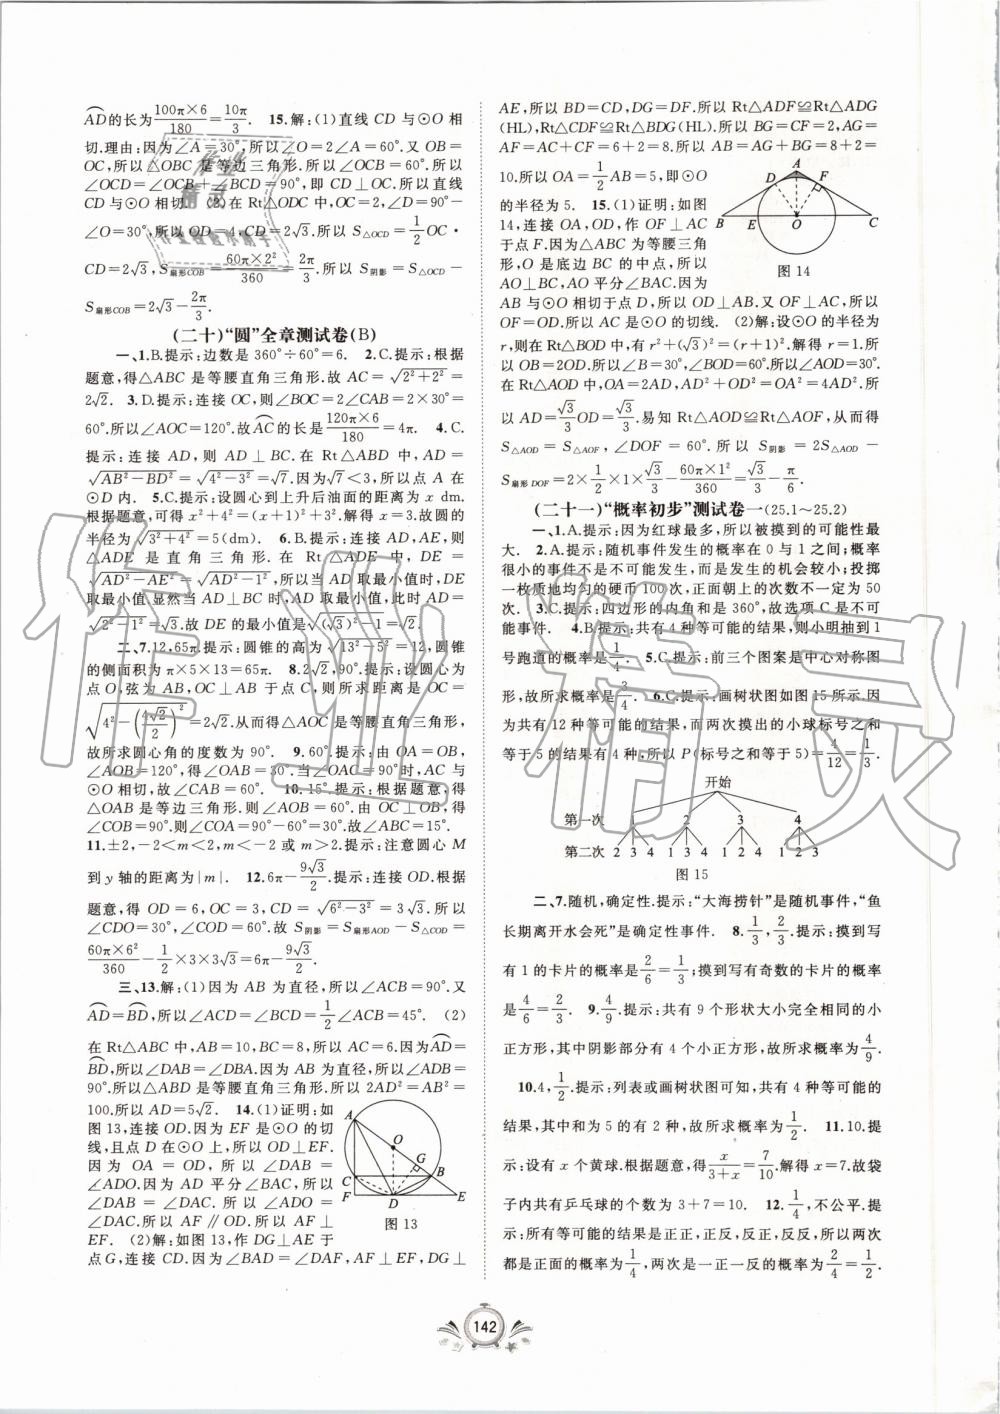 ⌒AD的长为100π×6/180=10π/3. 15.解:(1)直线 CD 与⊙O 相
切.理由:因为∠A=30°,所以∠O=2∠A=60°.又OB=
OC,所以△OBC 是等边三角形.所以∠OCB=60°.所以
∠OCD=∠OCB+∠BCD=90°,即 CD⊥OC.所以直线
CD 与⊙O 相切. (2)在 Rt△ODC 中,OC=2,∠D=90°-
∠O=30°,所以 OD=4,CD=2√3.所以 S△OCD=1/2 OC·
CD=2√3,S扇形COB=60π×2²/360=2π/3.所以 S阴影=S△OCD-
S扇形COB=2√3-2π/3.
(二十)“圆”全章测试卷(B)
一、1.B.提示:边数是 360°÷60°=6. 2.C.提示:根据
题意,得△ABC 是等腰直角三角形.故 AC=√(2²+2²)=
2√2. 3.D.提示:连接 OC,则∠BOC=2∠CAB=2×30°=
60°.所以∠AOC=120°.故⌒AC的长是120π×6/180=4π. 4.C.
提示:连接 AD,则 AD⊥BC.在 Rt△ABD 中,AD=
√(AB²-BD²)=√(4²-3²)=√7.因为√7<3,所以点 A 在
⊙D 内. 5.C.提示:设圆心到上升后油面的距离为 x dm.
根据题意,可得 x²+4²=(x+1)²+3².解得 x=3.故圆的
半径为√(3²+4²)=5(dm). 6.B.提示:连接 AD,AE,则
△ADE 是直角三角形.在 Rt△ADE 中,DE=
√(AD²-AE²)=√(AD²-1²),所以当 AD 取最小值时,DE
取最小值.显然当 AD⊥BC 时,AD 取最小值,此时 AD=
√(2²-1²)=√3.故 DE 的最小值是√((√3)²-1²)=√2.
二、7.12,65π.提示:圆锥的高为√(13²-5²)=12,圆锥
的侧面积为 π×5×13=65π. 8.2√2,90°.提示:设圆心为
点 O,弦为 AB,OC⊥AB 于点 C,则所求距离是 OC=
√(4²-(4√2/2)²)=2√2.从而得△AOC 是等腰直角三角形,
故所求圆心角的度数为 90°. 9.60°.提示:由 OA=OB,
∠AOB=120°,得∠OAB=30°.当∠OAC=90°时,AC 与
⊙O 相切.故最小旋转角是 60°. 10.15°.提示:根据题意,得
△OAB 是等边三角形.则∠AOB=60°.由 OC⊥OB,得
∠COB=90°.则∠COA=90°-60°=30°.故∠ABC=15°.
11.±2,-2<m<2,m<-2 或 m>2.提示:注意圆心 M
到 y 轴的距离为|m|. 12.6π-9√3/2.提示:连接 OD.根据
题意,得 OD=6,OC=3,CD=√(6²-3²)=3√3.所以
∠CDO=30°,∠COD=60°.故 S阴影=S扇形AOD-S△COD=
60π×6²/360-1/2×3×3√3=6π-9√3/2.
三、13.解:(1)因为 AB 为直径,所以∠ACB=90°.又
⌒AD=⌒BD,所以∠ACD=∠BCD=1/2∠ACB=45°. (2)
在 Rt△ABC 中,AB=10,BC=8,所以 AC=6.因为⌒AD=
⌒BD,所以∠ABD=∠DBA.因为 AB 为直径,所以∠ADB=
90°.所以△ABD 是等腰直角三角形.所以 2AD²=AB²=
100.所以 AD=5√2. 14.(1)证明:如
图 13,连接 OD.因为 EF 是⊙O 的切
线,且点 D 在⊙O 上,所以 OD⊥EF.
因为 OA=OD,所以∠DAB=
∠ADO.因为 AD 平分∠BAC,所以
∠DAB=∠DAC.所以∠ADO=
∠DAC.所以 AF∥OD.所以 AF⊥
EF. (2)解:如图 13,作 DG⊥AE 于
点 G,连接 CD.因为∠BAD=∠DAF,AF⊥EF,DG⊥
A
O
G
C
B
F
D
E
图 13
AE,所以 BD=CD,DG=DF.所以 Rt△ADF≌Rt△ADG
(HL),Rt△CDF≌Rt△BDG(HL).所以 BG=CF=2,AG=
AF=AC+CF=6+2=8.所以 AB=AG+BG=8+2=
10.所以 OA=1/2AB=5,即⊙O
的半径为 5. 15.(1)证明:如图
14,连接 OA,OD,作 OF⊥AC
于点 F.因为△ABC 为等腰三角
形,O 是底边 BC 的中点,所以
AO⊥BC,AO 平分∠BAC.因为
AB 与⊙O 相切于点 D,所以 OD⊥AB.又 OF⊥AC,所以
OF=OD.所以 AC 是⊙O 的切线. (2)解:设⊙O 的半径为
r,则在 Rt△BOD 中,有 r²+(√3)²=(r+1)².解得 r=1.所
以 OB=2OD.所以∠B=30°,∠BOD=60°.所以∠AOD=30°.
在 Rt△AOD 中,OA=2AD,AD²+OD²=OA²=4AD².所
以 AD=√3/3 OD=√3/3.易知 Rt△AOD≌Rt△AOF,从而得
S△AOD=S△AOF,∠DOF=60°.所以 S阴影=2S△AOD-
S扇形DOF=2×1/2×1×√3/3-60π×1²/360=√3/3-π/6.
A
D
F
B
E
O
C
图 14
(二十一)“概率初步”测试卷一(25.1～25.2)
一、1.A.提示:因为红球最多,所以被摸到的可能性最
大. 2.A.提示:随机事件发生的概率在 0 与 1 之间;概率
很小的事件不是不可能发生,而是发生的机会较小;投掷
一枚质地均匀的硬币 100次,正面朝上的次数不一定为 50
次. 3.C.提示:四边形的内角和是 360°,故选项 C 是不可
能事件. 4.B.提示:共有 4 种等可能的结果,则小明抽到 1
号跑道的概率是1/4. 5.C.提示:前三个图案是中心对称图
形,故所求概率是3/4. 6.C.提示:画树状图如图 15所示.因
为共有 12 种等可能的结果,而两次摸出的小球标号之和
等于 5 的结果有 4 种,所以 P(标号之和等于 5)=4/12=1/3.
开始
第一次 1 2 3 4
第二次 2 3 4 1 3 4 1 2 4 1 2 3
图 15
二、7.随机,确定性.提示:“大海捞针”是随机事件,“鱼
长期离开水会死”是确定性事件. 8.1/3,2/3.提示:摸到写
有 1 的卡片的概率是2/6=1/3;摸到写有奇数的卡片的概率
是4/6=2/3. 9.4/9.提示:共有 9 个形状大小完全相同的小
正方形,其中阴影部分有 4 个小正方形,故所求概率为4/9.
10.4,1/2.提示:列表或画树状图可知,共有 4 种等可能的
结果,其中和为 5 的有 2 种,故所求概率为1/2. 11.10.提
示:设有 x 个黄球.根据题意,得x/(3+x)=7/10.解得 x=7.故袋
子内共有乒乓球的个数为 3+7=10. 12.1/4,不公平.提
示:所有等可能的结果为正正,正反,反正,反反,所以两次
都是正面的概率为1/4,两次是一正一反的概率为2/4=1/2.
142
作业精灵